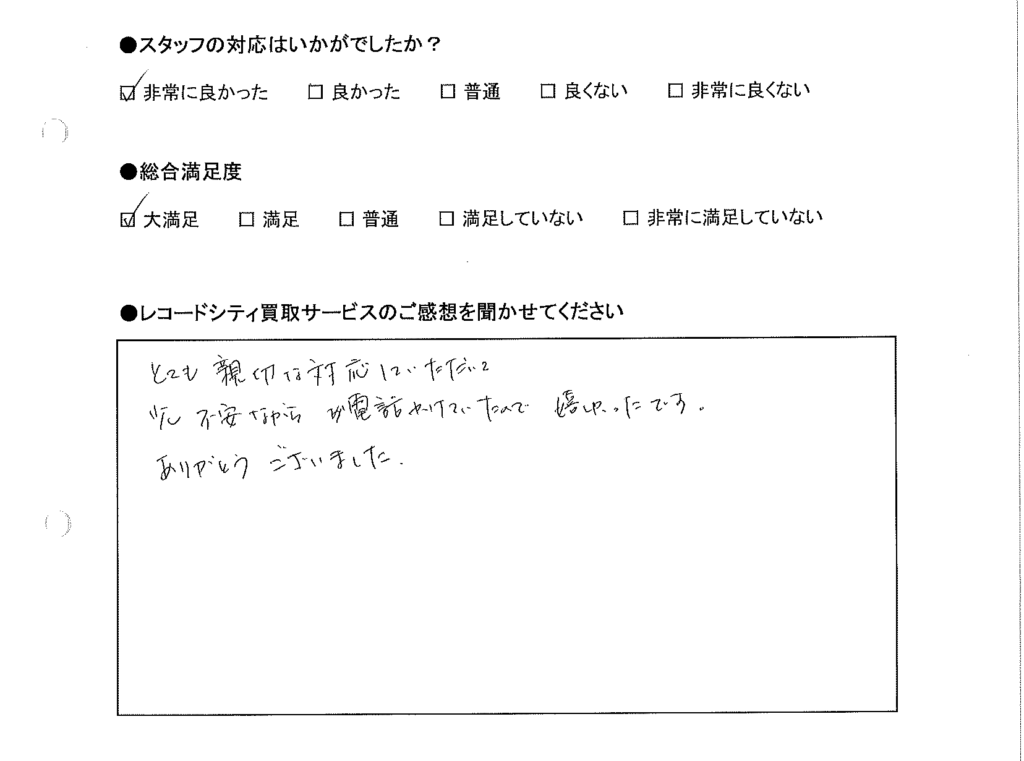 ●スタッフの対応はいかがでしたか？
☑ 非常に良かった □ 良かった □ 普通 □ 良くない □ 非常に良くない
●総合満足度
☑ 大満足 □ 満足 □ 普通 □ 満足していない □ 非常に満足していない
●レコードシティ買取サービスのご感想を聞かせてください
とても親切な対応していただいて
少し不安ながら お電話かけていたので 嬉しかったです。
ありがとうございました.